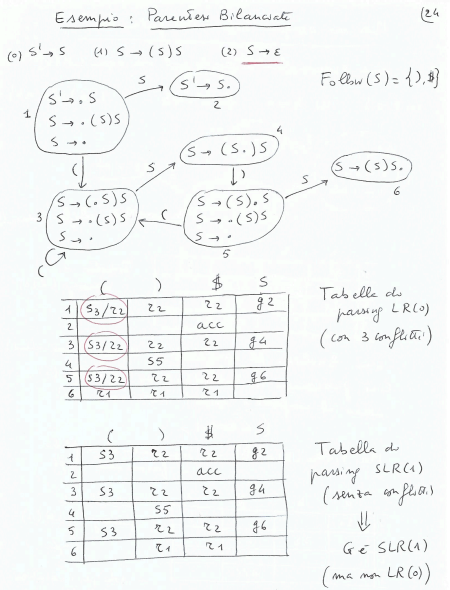 Esempio : Parentesi Bilanciate (24
(0) S' → S (1) S → (S)S (2) S → ε
Follow(S) = { ), $}
1
S' → . S
S → . (S)S
S → .
S
S' → S.
2
(
3
S → (.S)S
S → .(S)S
S → .
(
S
4
S → (S.)S
)
(
S → (S).S
S → .(S)S
S → .
5
S
S → (S)S.
6
( ) $ S
1 S3/r2 r2 r2 g2
2 acc
3 S3/r2 r2 r2 g4
4 S5
5 S3/r2 r2 r2 g6
6 r1 r1 r1
Tabella di
parsing LR(0)
(con 3 conflitti)
( ) $ S
1 S3 r2 r2 g2
2 acc
3 S3 r2 r2 g4
4 S5
5 S3 r2 r2 g6
6 r1 r1
Tabella di
parsing SLR(1)
(senza conflitti)
⇓
G è SLR(1)
(ma non LR(0))